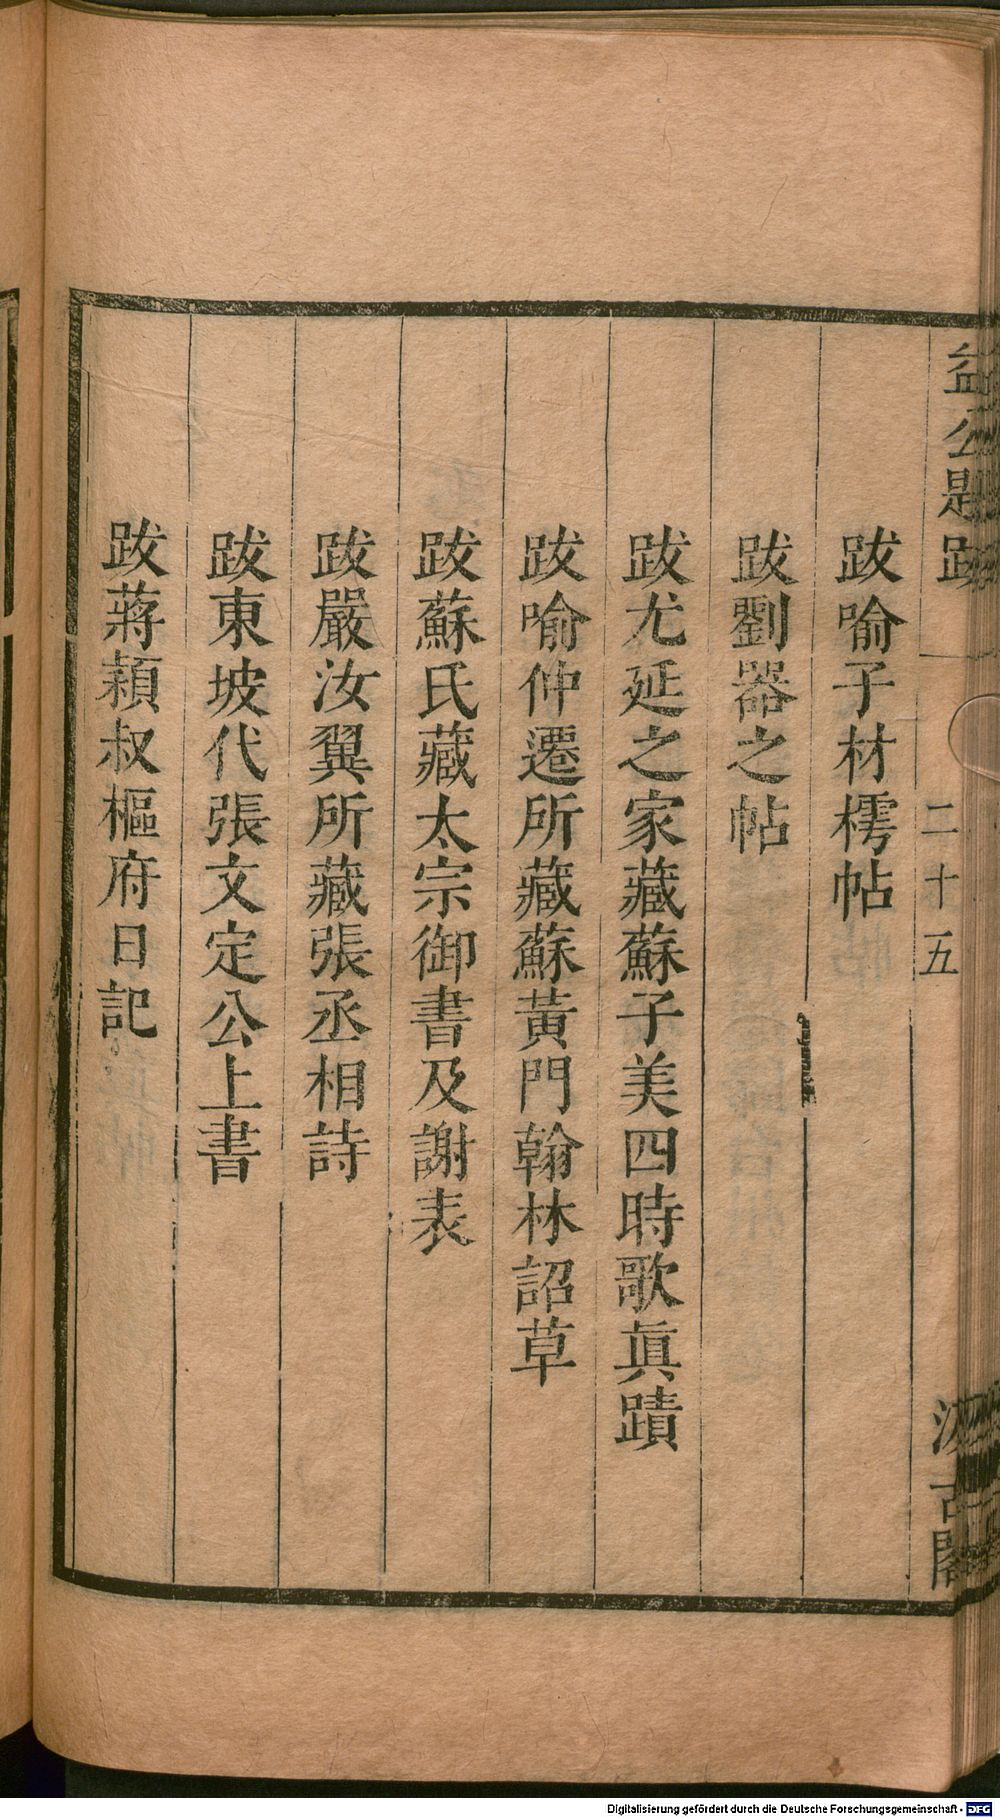 益公題跋
二十五
汲古閣
跋喻子材樗帖
跋劉器之帖
跋尤延之家藏蘇子美四時歌眞蹟
跋喻仲遷所藏蘇黃門翰林詔草
跋蘇氏藏太宗御書及謝表
跋嚴汝翼所藏張丞相詩
跋東坡代張文定公上書
跋蔣穎叔樞府日記
Digitalisierung gefördert durch die Deutsche Forschungsgemeinschaft - DFG